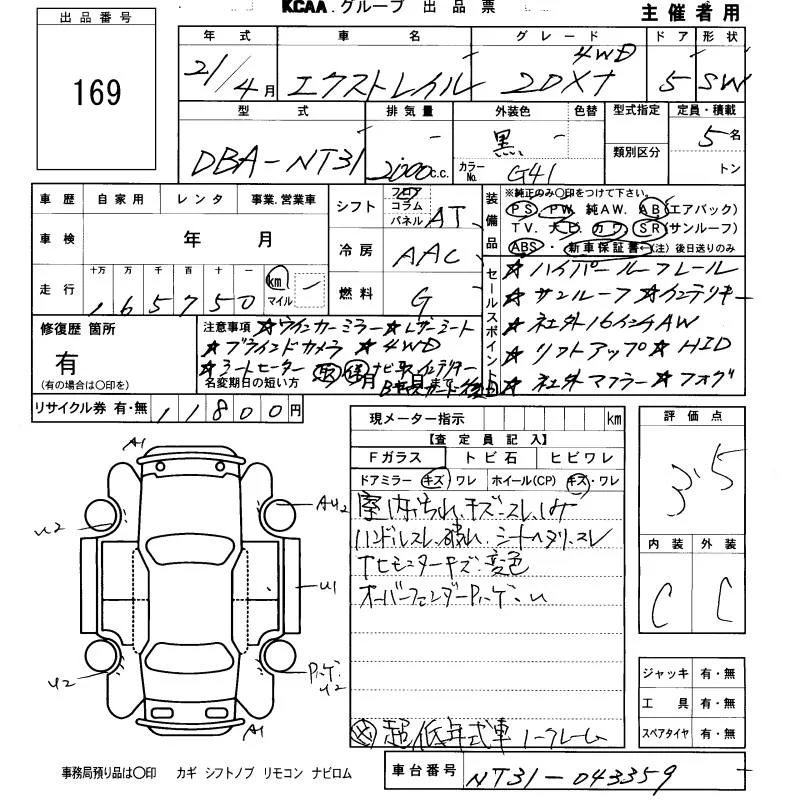 KCAA.グループ 出品票
主催者用
出品番号
169
年式 車名 グレード ドア 形状
21/4月 エクストレイル 4WD 20Xt 5 SW
型式 排気量 外装色 色替 型式指定 定員・積載
DBA-NT31 2000c.c. 黒 - 5名
カラーNo. G41 類別区分 トン
車歴 自家用 レンタ 事業.営業車
車検 年 月
十万 万 千 百 十 一 km マイル
走行 165750 -
シフト フロア コラム パネル AT
冷房 AAC
燃料 G
装備品
※純正のみ○印をつけて下さい。
PS. PW. 純AW. AB(エアバック)
TV. ナビ カワ SR(サンルーフ)
ABS・新車保証書(注)後日送りのみ
セールスポイント
★ハイパールーフレール
★サンルーフ★インテリキー
★社外16インチAW
★リフトアップ★HID
★社外マフラー★フォグ
修復歴 箇所
有
(有の場合は○印を)
注意事項 ★ウインカーミラー★レザーシート
★ブラインドカメラ★4WD
★シートヒーター
名変期日の短い方 月 日まで
リサイクル券 有・無 11800円
現メーター指示 km
【査定員記入】
Fガラス トビ石 ヒビワレ
ドアミラー キズ ワレ ホイール(CP) キズ・ワレ
室内汚れ、キズ、スレ、シミ
ハンドルスレ、破れ、シートヘタリ、スレ
ナビモニターキズ、変色
オーバーフェンダーPハゲ、U
超低年式車 ノークレーム
評価点
3.5
内装 外装
C C
ジャッキ 有・無
工具 有・無
スペアタイヤ 有・無
A1
U2
AU2
U1
U2
Pハゲ U2
A1
事務局預り品は○印 カギ シフトノブ リモコン ナビロム
車台番号 NT31-043359